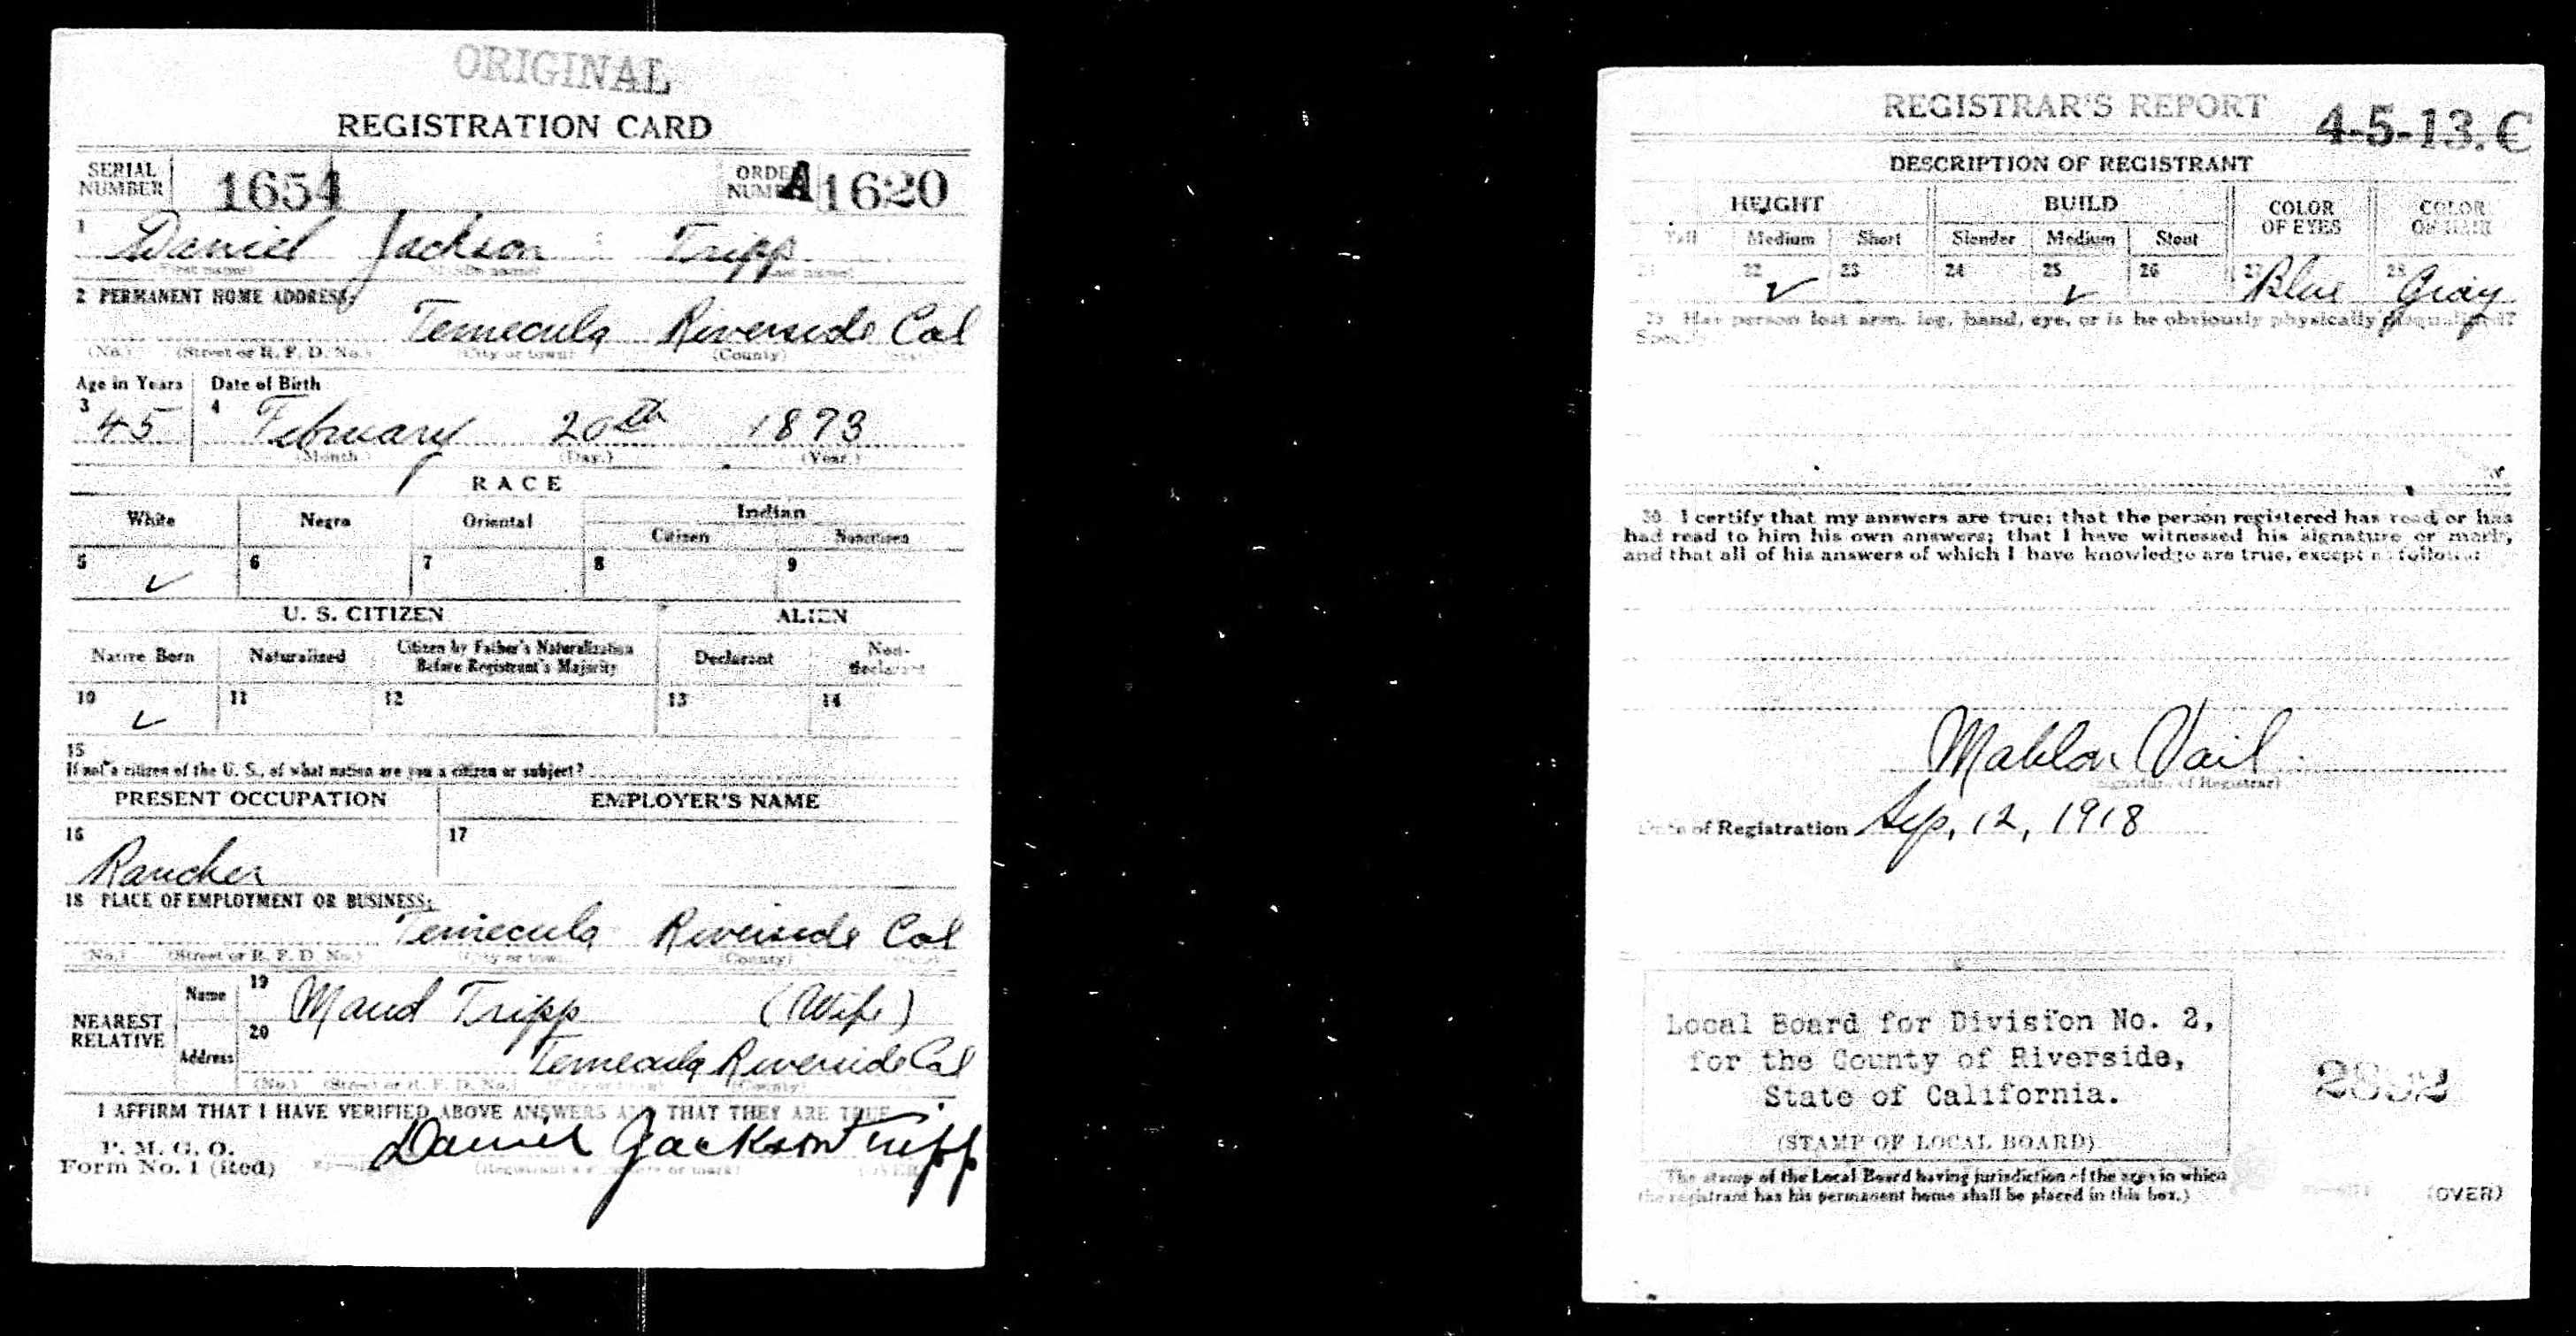 ORIGINAL
REGISTRATION CARD
SERIAL NUMBER 1654 ORDER NUMB A1620
1 Daniel Jackson Tripp
(First name) (Middle name) (Last name)
2 PERMANENT HOME ADDRESS:
Temecula Riverside Cal
(No.) (Street or R. F. D. No.) (City or town) (County)
Age in Years Date of Birth
3 45 4 February 20th 1873
(Month.) (Day.) (Year.)
RACE
White Negro Oriental Indian
Citizen Noncitizen
5 ✓ 6 7 8 9
U. S. CITIZEN ALIEN
Native Born Naturalized Citizen by Father's Naturalization Before Registrant's Majority Declarant Non-declarant
10 ✓ 11 12 13 14
15
If not a citizen of the U. S., of what nation are you a citizen or subject?
PRESENT OCCUPATION EMPLOYER'S NAME
16 17
Rancher
18 PLACE OF EMPLOYMENT OR BUSINESS:
Temecula Riverside Cal
(No.) (Street or R. F. D. No.) (City or town) (County)
NEAREST RELATIVE Name 19 Maud Tripp (Wife)
Address 20 Temecula Riverside Cal
(No.) (Street or R. F. D. No.) (City or town) (County)
I AFFIRM THAT I HAVE VERIFIED ABOVE ANSWERS AND THAT THEY ARE TRUE
P. M. G. O.
Form No. 1 (Red) Daniel Jackson Tripp
(Registrant's signature or mark) (OVER)
REGISTRAR'S REPORT 4-5-13. C
DESCRIPTION OF REGISTRANT
HEIGHT BUILD COLOR OF EYES COLOR OF HAIR
Tall Medium Short Slender Medium Stout
21 22 ✓ 23 24 25 ✓ 26 27 Blue 28 Gray
29 Has person lost arm, leg, hand, eye, or is he obviously physically disqualified?
30 I certify that my answers are true; that the person registered has read or has
had read to him his own answers; that I have witnessed his signature or mark,
and that all of his answers of which I have knowledge are true, except as follows:
Mahlon Vail
(Signature of Registrar)
Date of Registration Sep, 12, 1918
Local Board for Division No. 2,
for the County of Riverside,
State of California.
(STAMP OF LOCAL BOARD)
The stamp of the Local Board having jurisdiction of the area in which
the registrant has his permanent home shall be placed in this box.)
(OVER)